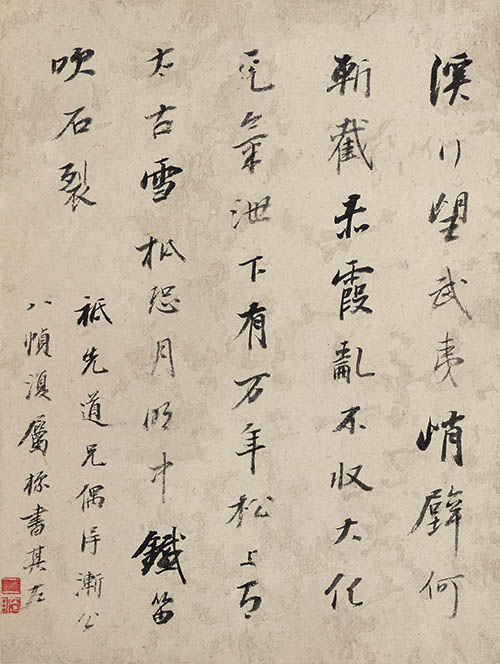 溪行望武夷峭壁何
斬截赤霞亂不收大化
元氣泄下有万年松上有
太古雪秪恐月明中鐵笛
吹石裂
祗先道兄偶得漸公
八幀湏屬書其左